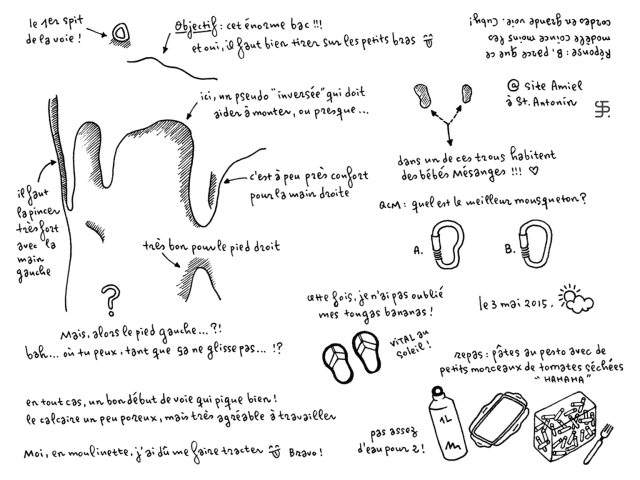 le 1er spit
de la voie !
Objectif : cet énorme bac !!!
et oui, il faut bien tirer sur les petits bras
Réponse : B. parce que ce
modèle coince moins les
cordes en grande voie. Cuby !
ici, un pseudo "inversée" qui doit
aider à monter, ou presque...
@ site Amiel
à St. Antonin
dans un de ces trous habitent
des bébés Mésanges !!! ♡
c'est à peu près confort
pour la main droite
il faut
la pincer
très fort
avec la
main
gauche
QCM : quel est le meilleur mousqueton ?
A.
B.
très bon pour le pied droit
?
cette fois, je n'ai pas oublié
mes tongas bananas !
le 3 mai 2015.
Mais, alors le pied gauche...?!
bah... où tu peux, tant que ça ne glisse pas... !?
vital au
soleil !
repas : pâtes au pesto avec de
petits morceaux de tomates séchées
"HAHAHA"
en tout cas, un bon début de voie qui pique bien !
le calcaire un peu poreux, mais très agréable à travailler
1L
pas assez
d'eau pour 2 !
Moi, en moulinette, j'ai dû me faire tracter Bravo !